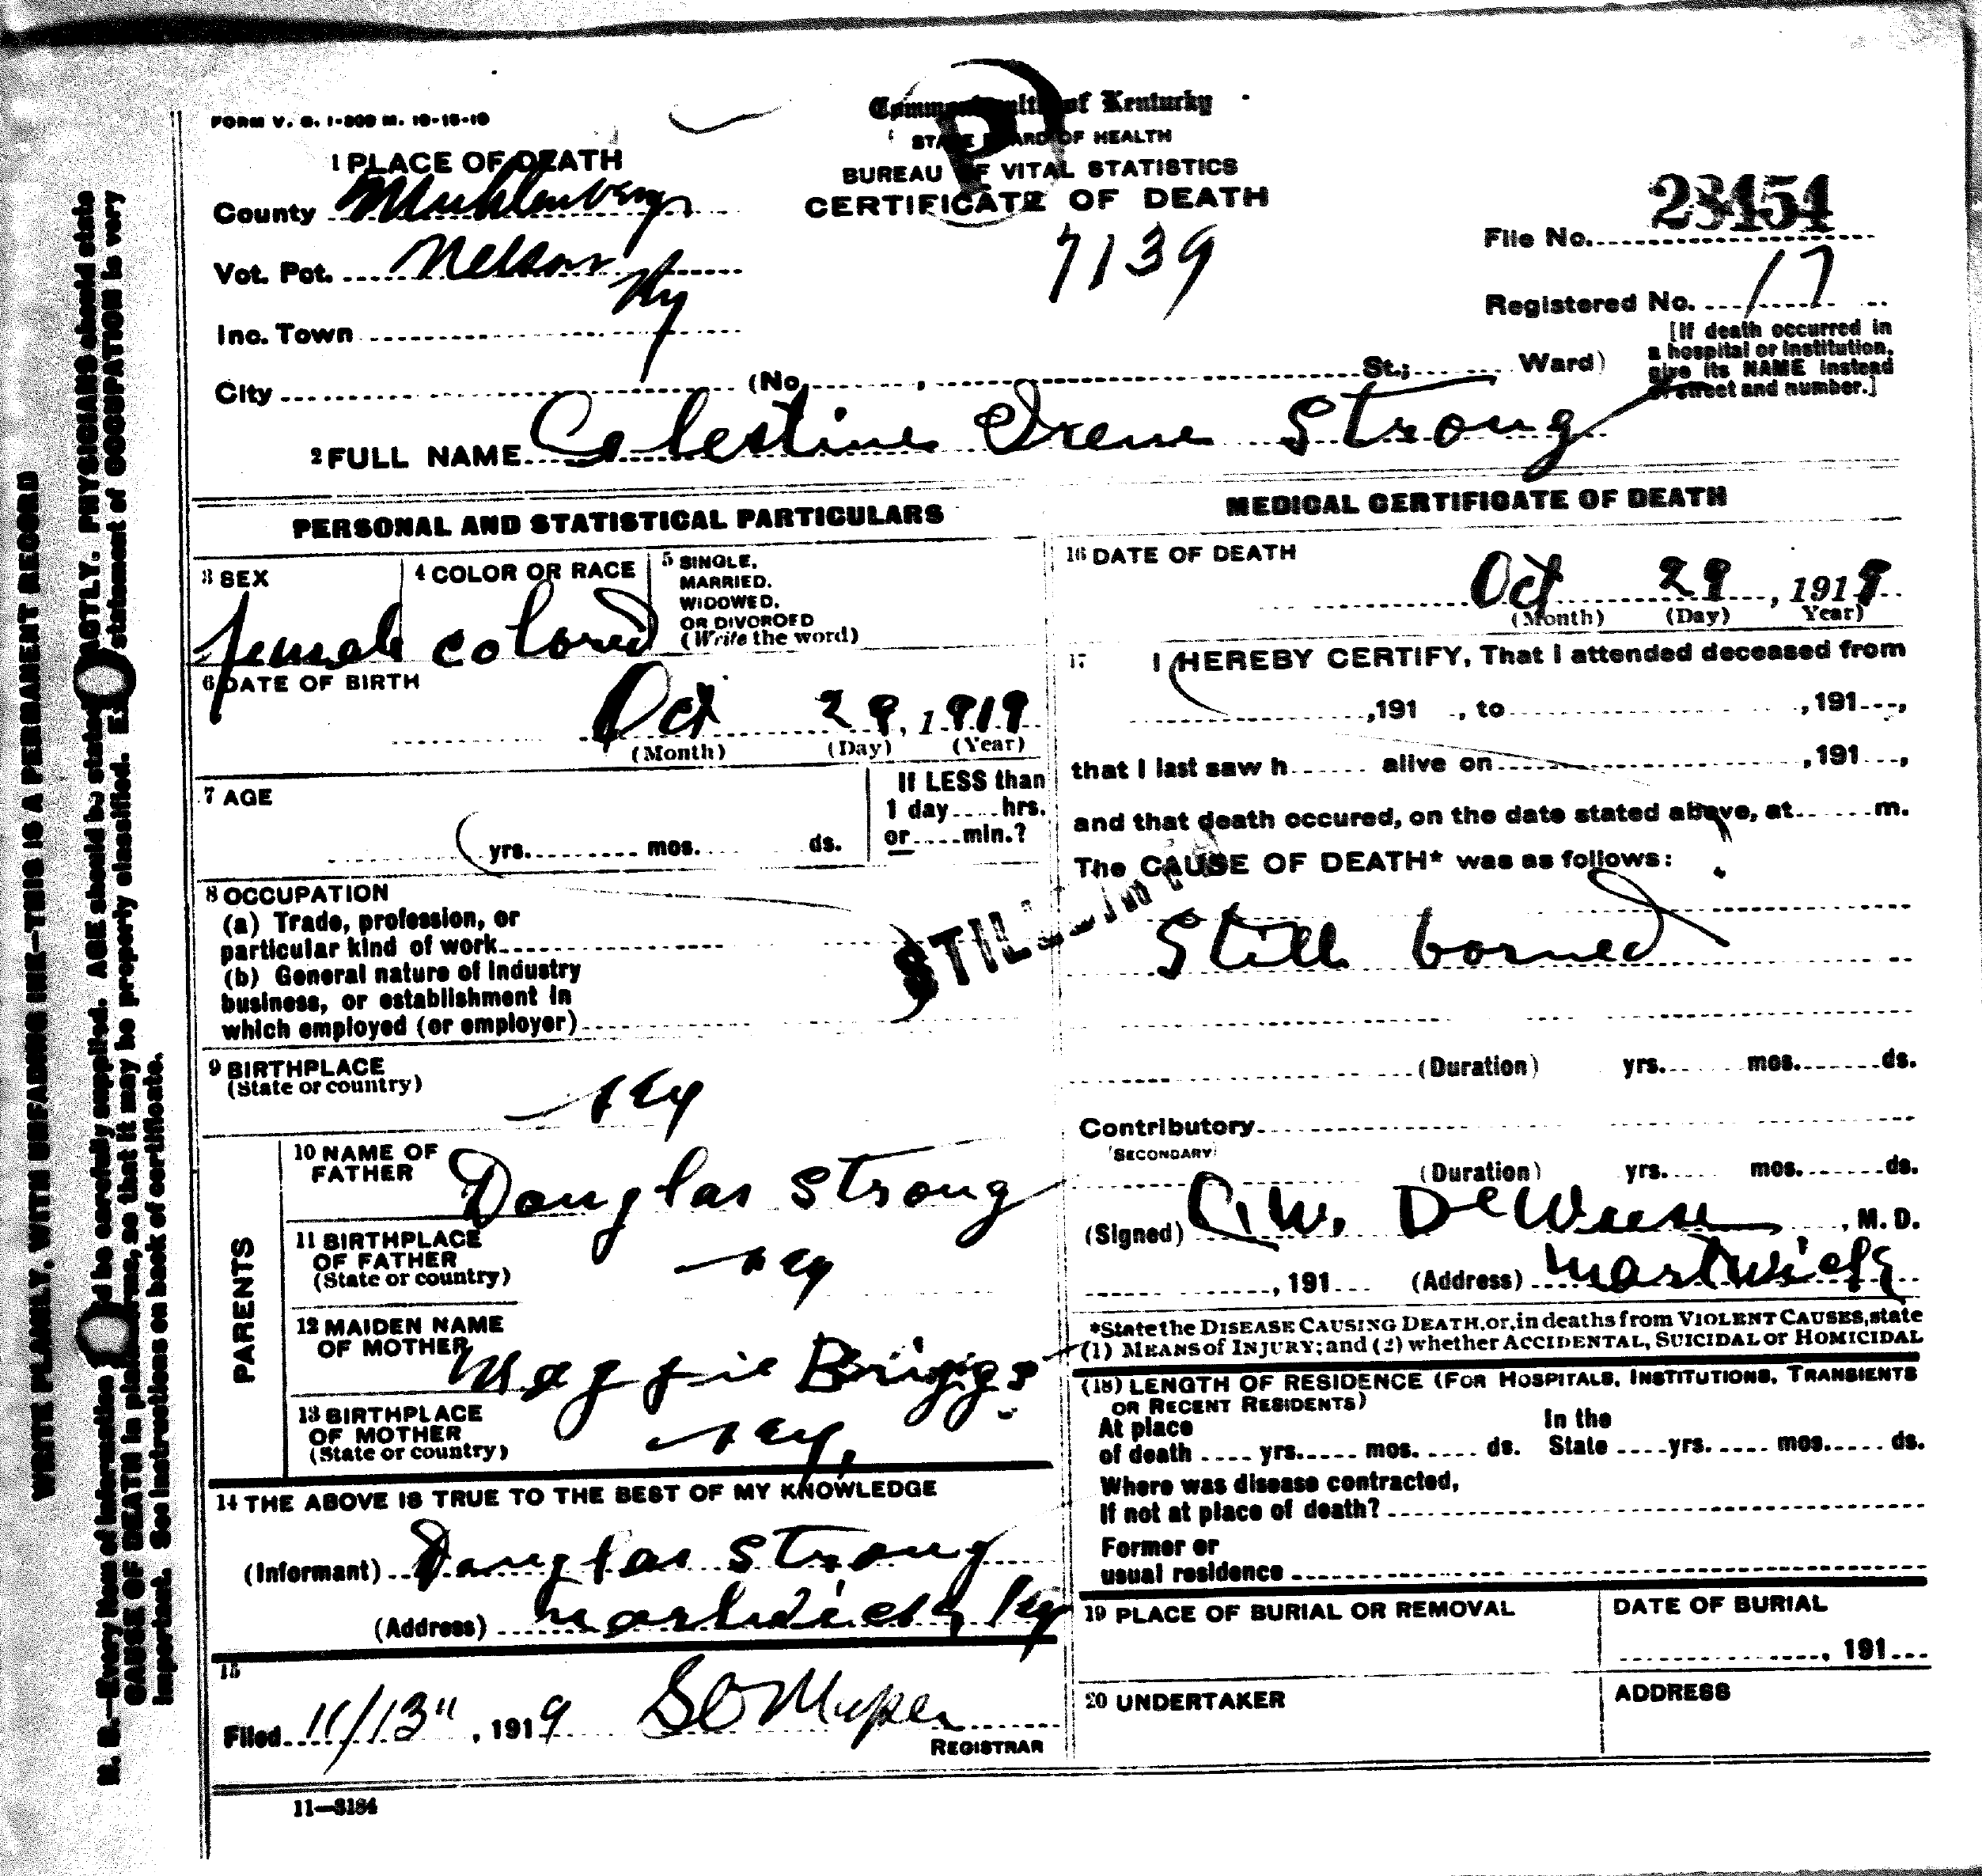 FORM V. S. 1-300 M. 10-15-19
Commonwealth of Kentucky
STATE BOARD OF HEALTH
BUREAU OF VITAL STATISTICS
CERTIFICATE OF DEATH
7139
1 PLACE OF DEATH
County Muhlenberg
Vot. Pct. Nelson
Ky
Inc. Town
City (No. , St.; Ward)
File No. 23454
Registered No. 17
[If death occurred in
a hospital or institution,
give its NAME instead
of street and number.]
2 FULL NAME Celestine Irene Strong
PERSONAL AND STATISTICAL PARTICULARS
3 SEX
female
4 COLOR OR RACE
colored
5 SINGLE,
MARRIED,
WIDOWED,
OR DIVORCED
(Write the word)
6 DATE OF BIRTH
Oct 29, 1919
(Month) (Day) (Year)
7 AGE
yrs. mos. ds.
If LESS than
1 day hrs.
or min.?
8 OCCUPATION
(a) Trade, profession, or
particular kind of work
(b) General nature of Industry
business, or establishment in
which employed (or employer)
9 BIRTHPLACE
(State or country)
Ky
PARENTS
10 NAME OF
FATHER
Douglas Strong
11 BIRTHPLACE
OF FATHER
(State or country)
Ky
12 MAIDEN NAME
OF MOTHER
Maggie Briggs
13 BIRTHPLACE
OF MOTHER
(State or country)
Ky.
14 THE ABOVE IS TRUE TO THE BEST OF MY KNOWLEDGE
(Informant) Douglas Strong
(Address) Martwick Ky
15
Filed 11/13", 1919
REGISTRAR
11—3184
MEDICAL CERTIFICATE OF DEATH
16 DATE OF DEATH
Oct 29, 1919
(Month) (Day) Year)
17 I HEREBY CERTIFY, That I attended deceased from
,191 , to ,191 ,
that I last saw h alive on ,191 ,
and that death occured, on the date stated above, at m.
The CAUSE OF DEATH* was as follows:
STILLBIRTH
Still borned
(Duration) yrs. mos. ds.
Contributory
SECONDARY
(Duration) yrs. mos. ds.
(Signed) C.W. DeWeese, M. D.
, 191 (Address) Martwick
*State the DISEASE CAUSING DEATH, or, in deaths from VIOLENT CAUSES, state
(1) MEANS of INJURY; and (2) whether ACCIDENTAL, SUICIDAL or HOMICIDAL
(18) LENGTH OF RESIDENCE (FOR HOSPITALS, INSTITUTIONS, TRANSIENTS
OR RECENT RESIDENTS)
At place In the
of death yrs. mos. ds. State yrs. mos. ds.
Where was disease contracted,
If not at place of death?
Former or
usual residence
19 PLACE OF BURIAL OR REMOVAL
DATE OF BURIAL
, 191
20 UNDERTAKER
ADDRESS
WRITE PLAINLY, WITH UNFADING INK—THIS IS A PERMANENT RECORD
N. B.—Every item of information should be carefully supplied. AGE should be stated EXACTLY. PHYSICIANS should state
CAUSE OF DEATH in plain terms, so that it may be properly classified. Exact statement of OCCUPATION is very
important. See instructions on back of certificate.